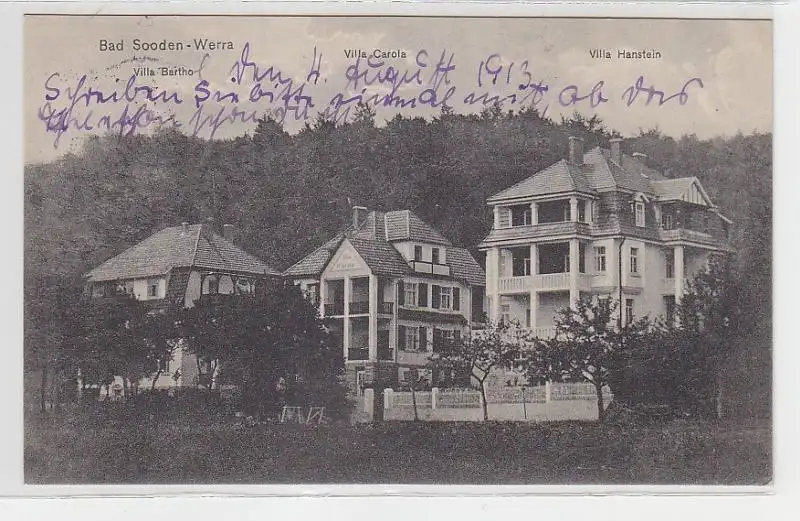 Bad Sooden-Werra
Villa Bartho
Villa Carola
Villa Hanstein
Den 4. August 1913
Schreiben Sie bitte einmal mit ob das